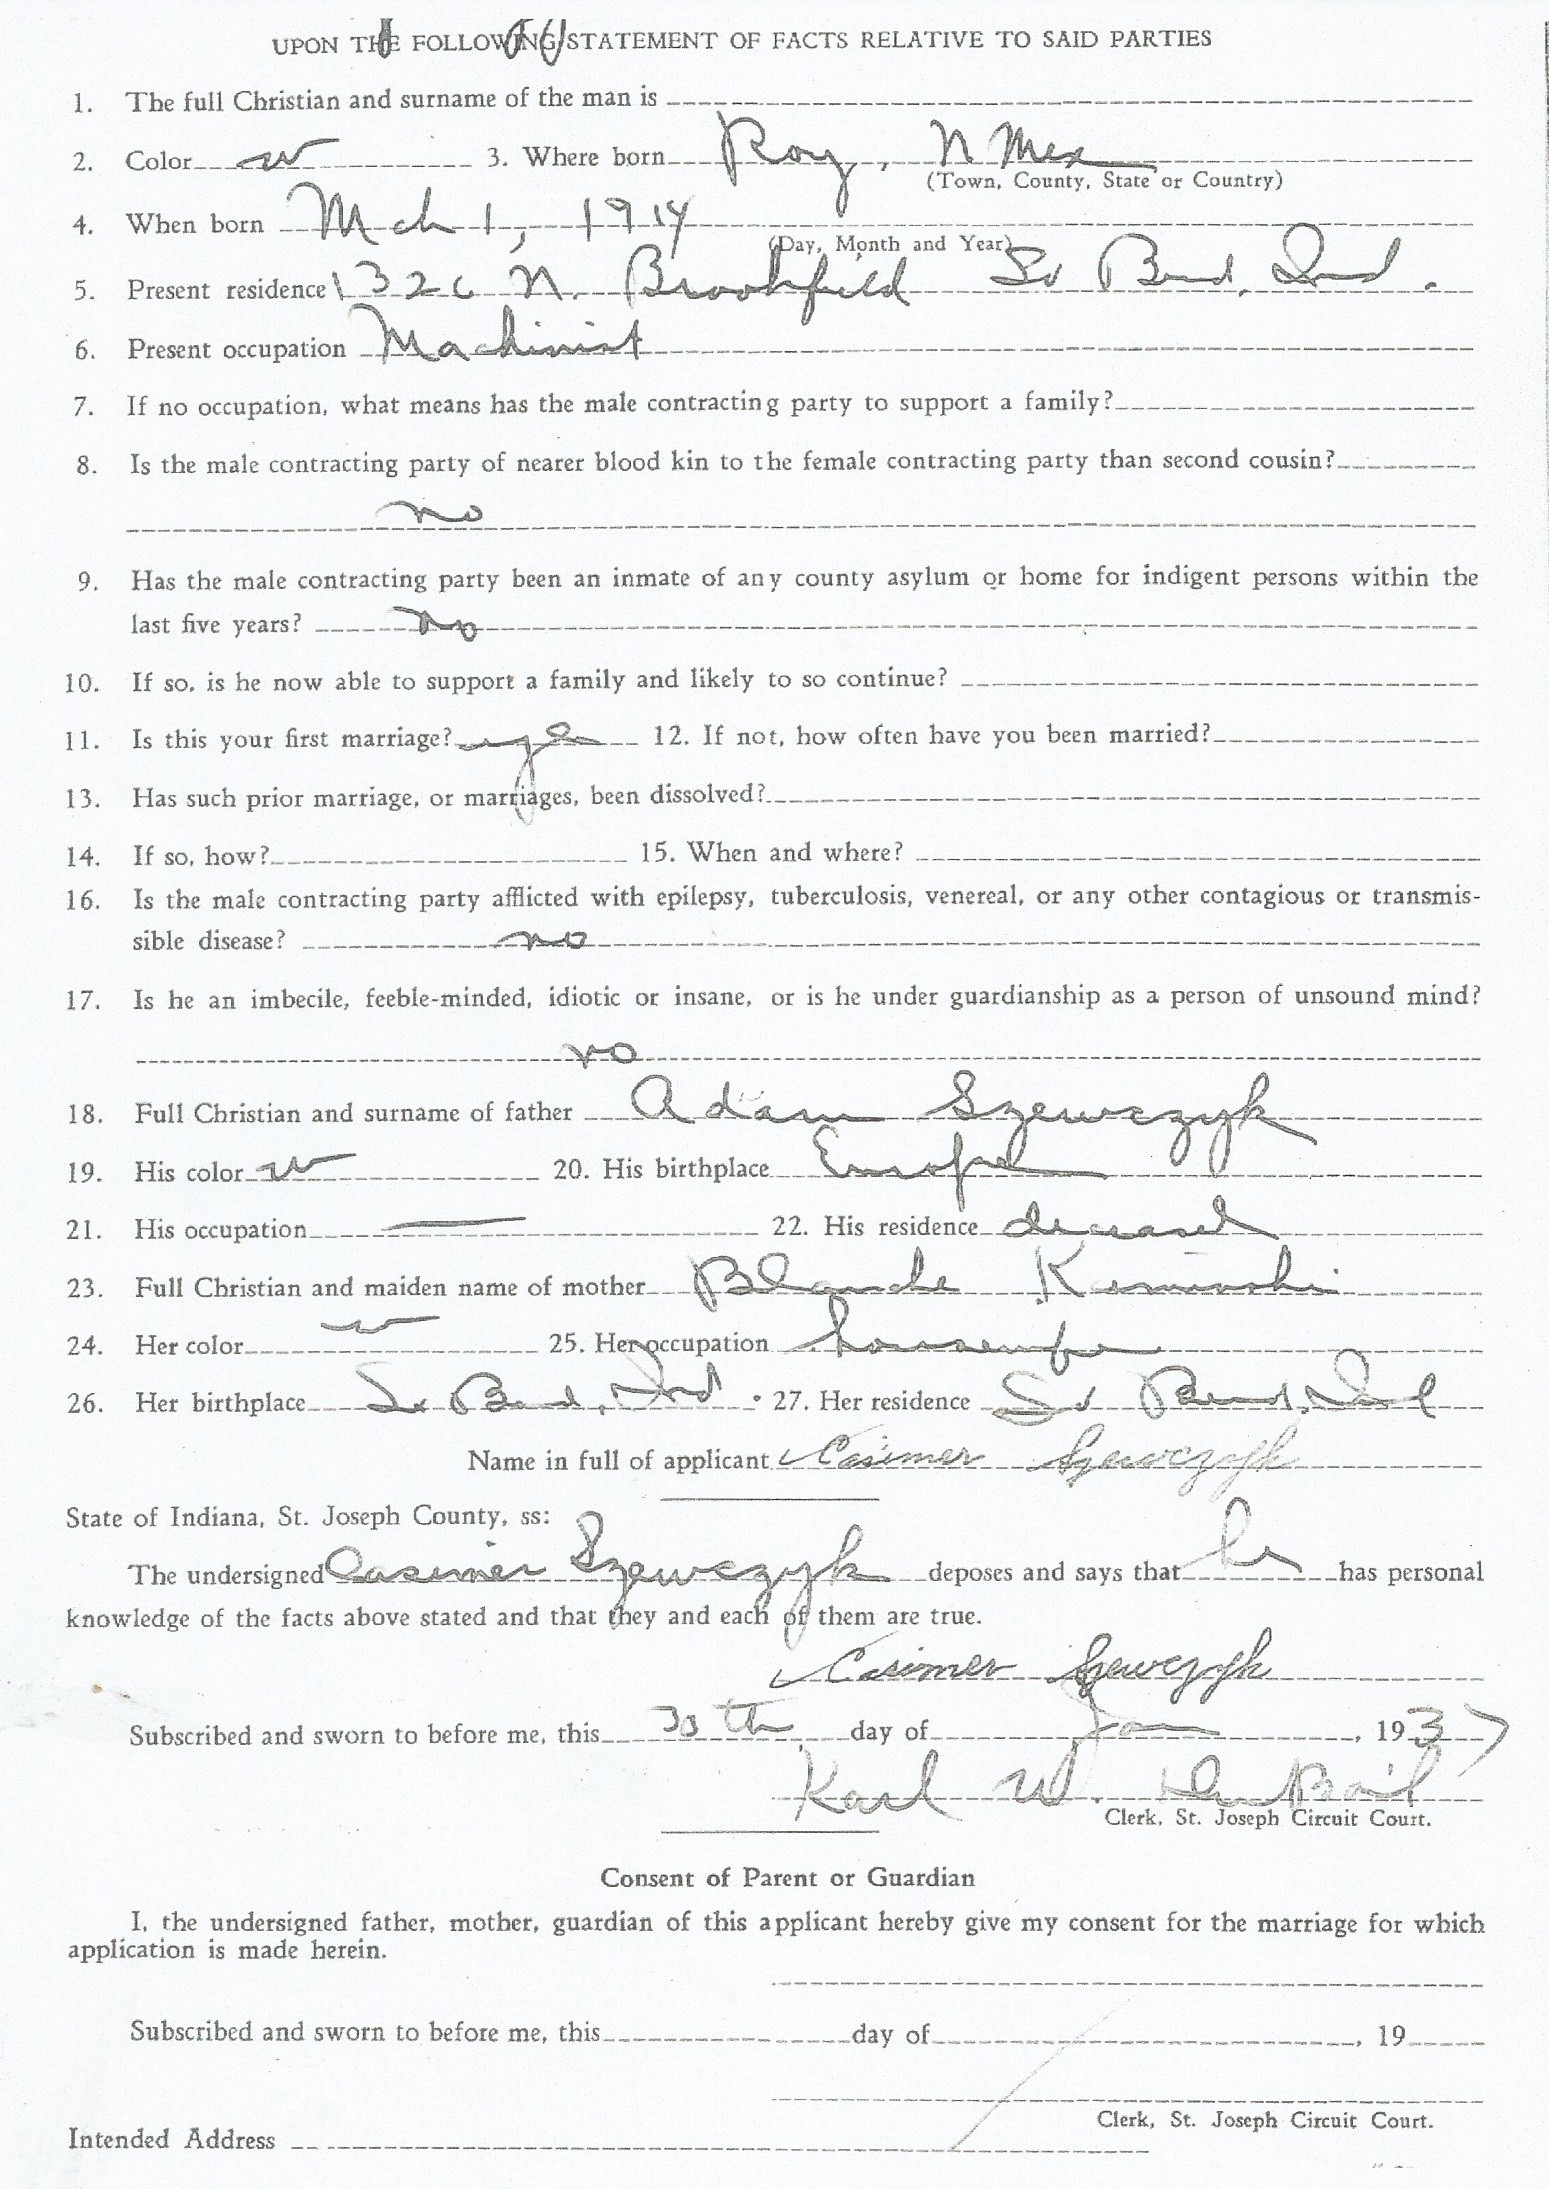 UPON THE FOLLOWING STATEMENT OF FACTS RELATIVE TO SAID PARTIES
1. The full Christian and surname of the man is
2. Color w 3. Where born Roy, N Mex
(Town, County, State or Country)
4. When born Mch 1, 1914
(Day, Month and Year)
5. Present residence 1326 N. Brookfield So Bend, Ind.
6. Present occupation Machinist
7. If no occupation, what means has the male contracting party to support a family?
8. Is the male contracting party of nearer blood kin to the female contracting party than second cousin?
no
9. Has the male contracting party been an inmate of any county asylum or home for indigent persons within the
last five years? no
10. If so, is he now able to support a family and likely to so continue?
11. Is this your first marriage? yes 12. If not, how often have you been married?
13. Has such prior marriage, or marriages, been dissolved?
14. If so, how? 15. When and where?
16. Is the male contracting party afflicted with epilepsy, tuberculosis, venereal, or any other contagious or transmis-
sible disease? no
17. Is he an imbecile, feeble-minded, idiotic or insane, or is he under guardianship as a person of unsound mind?
no
18. Full Christian and surname of father Adam Szewczyk
19. His color w 20. His birthplace Europe
21. His occupation — 22. His residence deceased
23. Full Christian and maiden name of mother Blanche Kaminski
24. Her color w 25. Her occupation housewife
26. Her birthplace So Bend, Ind. 27. Her residence So Bend, Ind
Name in full of applicant Casimer Szewczyk
State of Indiana, St. Joseph County, ss:
The undersigned Casimer Szewczyk deposes and says that he has personal
knowledge of the facts above stated and that they and each of them are true.
Casimer Szewczyk
Subscribed and sworn to before me, this 30th day of Jan, 1937
Karl W. DuBail
Clerk, St. Joseph Circuit Court.
Consent of Parent or Guardian
I, the undersigned father, mother, guardian of this applicant hereby give my consent for the marriage for which
application is made herein.
Subscribed and sworn to before me, this day of , 19
Clerk, St. Joseph Circuit Court.
Intended Address